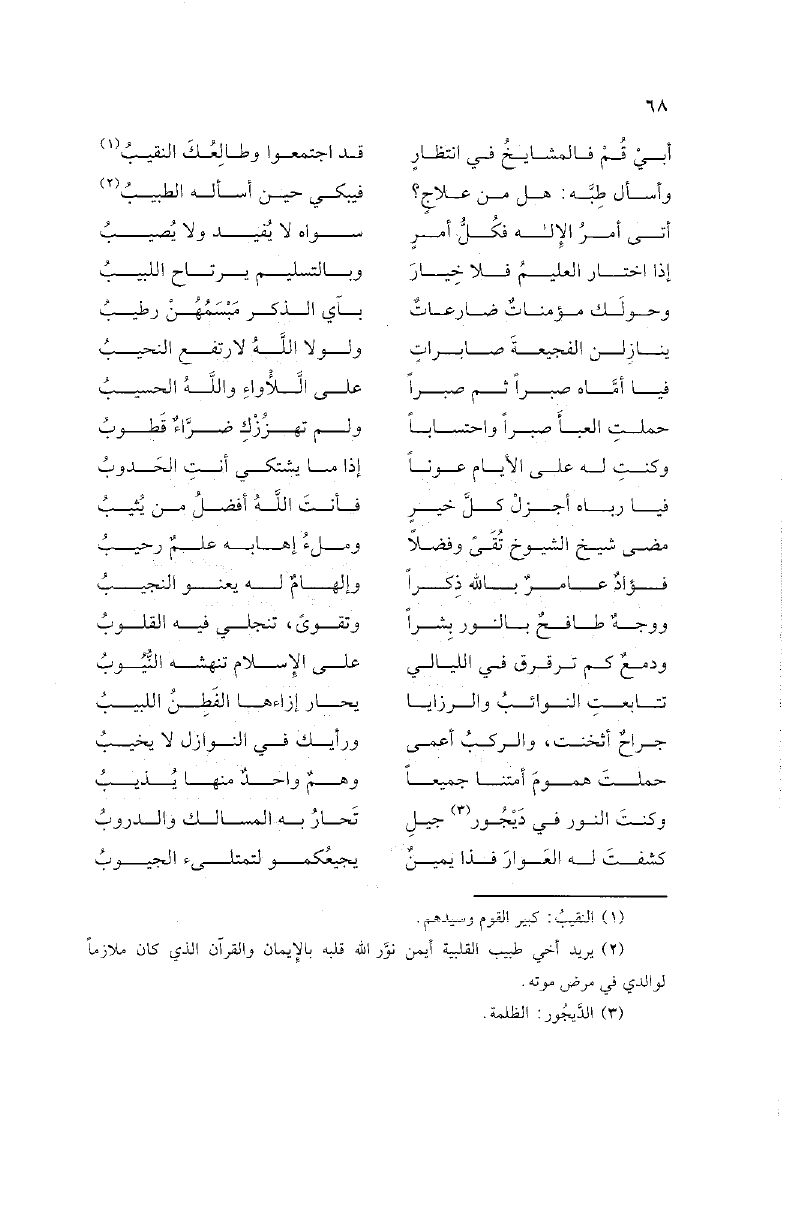 ٦٨
أبيْ قُمْ فالمشايخُ في انتظارٍ قد اجتمعوا وطالعُكَ النقيبُ(١)
وأسأل طبَّه: هل من علاجٍ؟ فيبكي حين أسأله الطبيبُ(٢)
أتى أمرُ الإله فكُلُّ أمرٍ سواه لا يُفيد ولا يُصيبُ
إذا اختار العليمُ فلا خِيارَ وبالتسليم يرتاح اللبيبُ
وحولَك مؤمناتٌ ضارعاتٌ بآي الذكر مَبْسَمُهُنّ رطيبُ
ينازلن الفجيعةَ صابراتٍ ولولا اللَّهُ لارتفع النحيبُ
فيا أمَّاه صبراً ثم صبراً على الَّلأواءِ واللَّهُ الحسيبُ
حملتِ العبأَ صبراً واحتساباً ولم تهزُزْكِ ضرَّاءٌ قَطوبُ
وكنتِ له على الأيام عوناً إذا ما يشتكي أنتِ الحَدوبُ
فيا رباه أجزلْ كلَّ خيرٍ فأنتَ اللَّهُ أفضلُ من يُثيبُ
مضى شيخ الشيوخ تُقىً وفضلاً وملءُ إهابه علمٌ رحيبُ
فؤادٌ عامرٌ بالله ذكراً وإلهامٌ له يعنو النجيبُ
ووجهٌ طافحٌ بالنور بِشراً وتقوىً، تنجلي فيه القلوبُ
ودمعٌ كم ترقرق في الليالي على الإسلام تنهشه النُّيُوبُ
تتابعتِ النوائبُ والرزايا يحار إزاءها الفَطِنُ اللبيبُ
جراحٌ أثخنت، والركبُ أعمى ورأيك في النوازل لا يخيبُ
حملتَ همومَ أمتنا جميعاً وهمٌّ واحدٌ منها يُذيبُ
وكنتَ النور في دَيْجُور(٣) جيلٍ تَحارُ به المسالك والدروبُ
كشفتَ له العَوارَ فذا يمينٌ يجيعُكمو لتمتلىء الجيوبُ
(١) النقيبُ: كبير القوم وسيدهم.
(٢) يريد أخي طبيب القلبية أيمن نوَّر الله قلبه بالإيمان والقرآن الذي كان ملازماً
لوالدي في مرض موته.
(٣) الدَّيجُور: الظلمة.